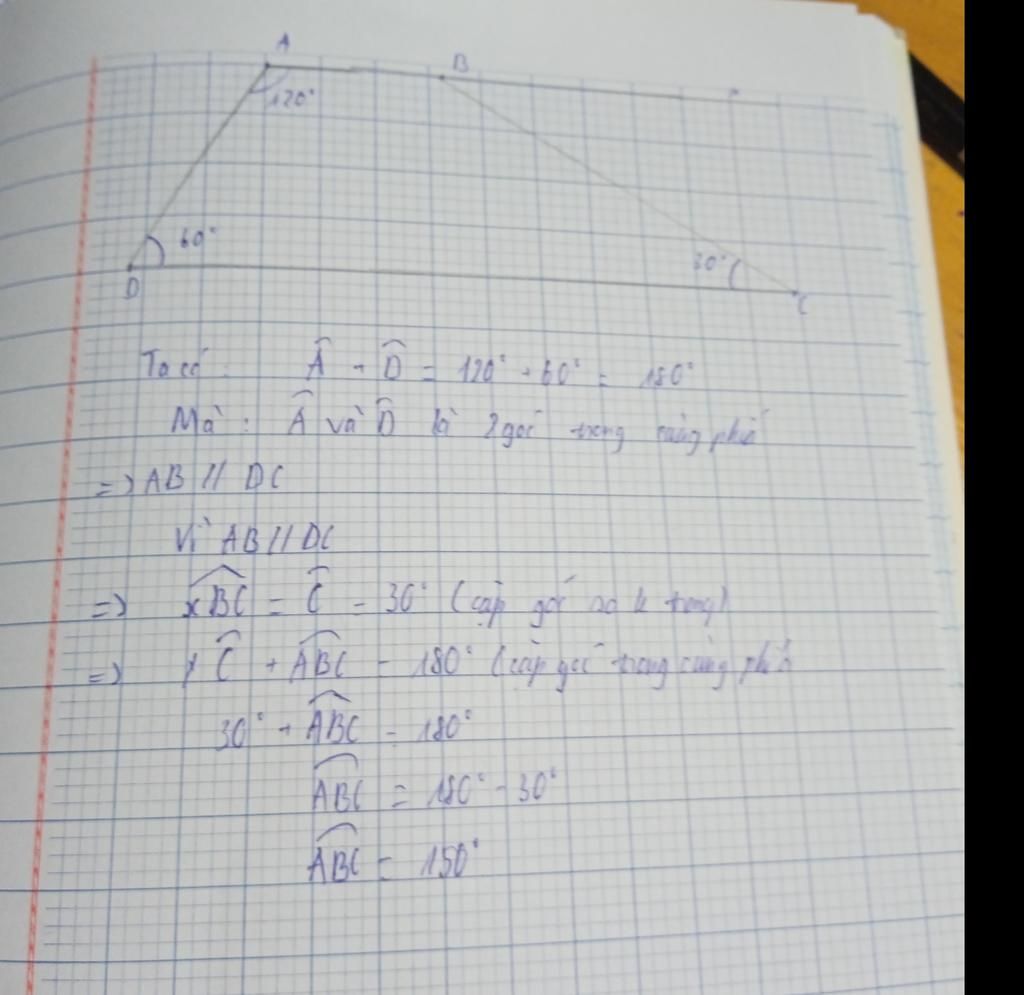 A
B
120°
60°
30°
D
C
Ta có: Â + D̂ = 120° + 60° = 180°
Mà: Â và D̂ là 2 góc trong cùng phía
=> AB // DC
Vì AB // DC
=> \widehat{xBC} = Ĉ = 30° (cặp góc so le trong)
=> Ĉ + \widehat{ABC} = 180° (cặp góc trong cùng phía
30° + \widehat{ABC} = 180°
\widehat{ABC} = 180° - 30°
\widehat{ABC} = 150°